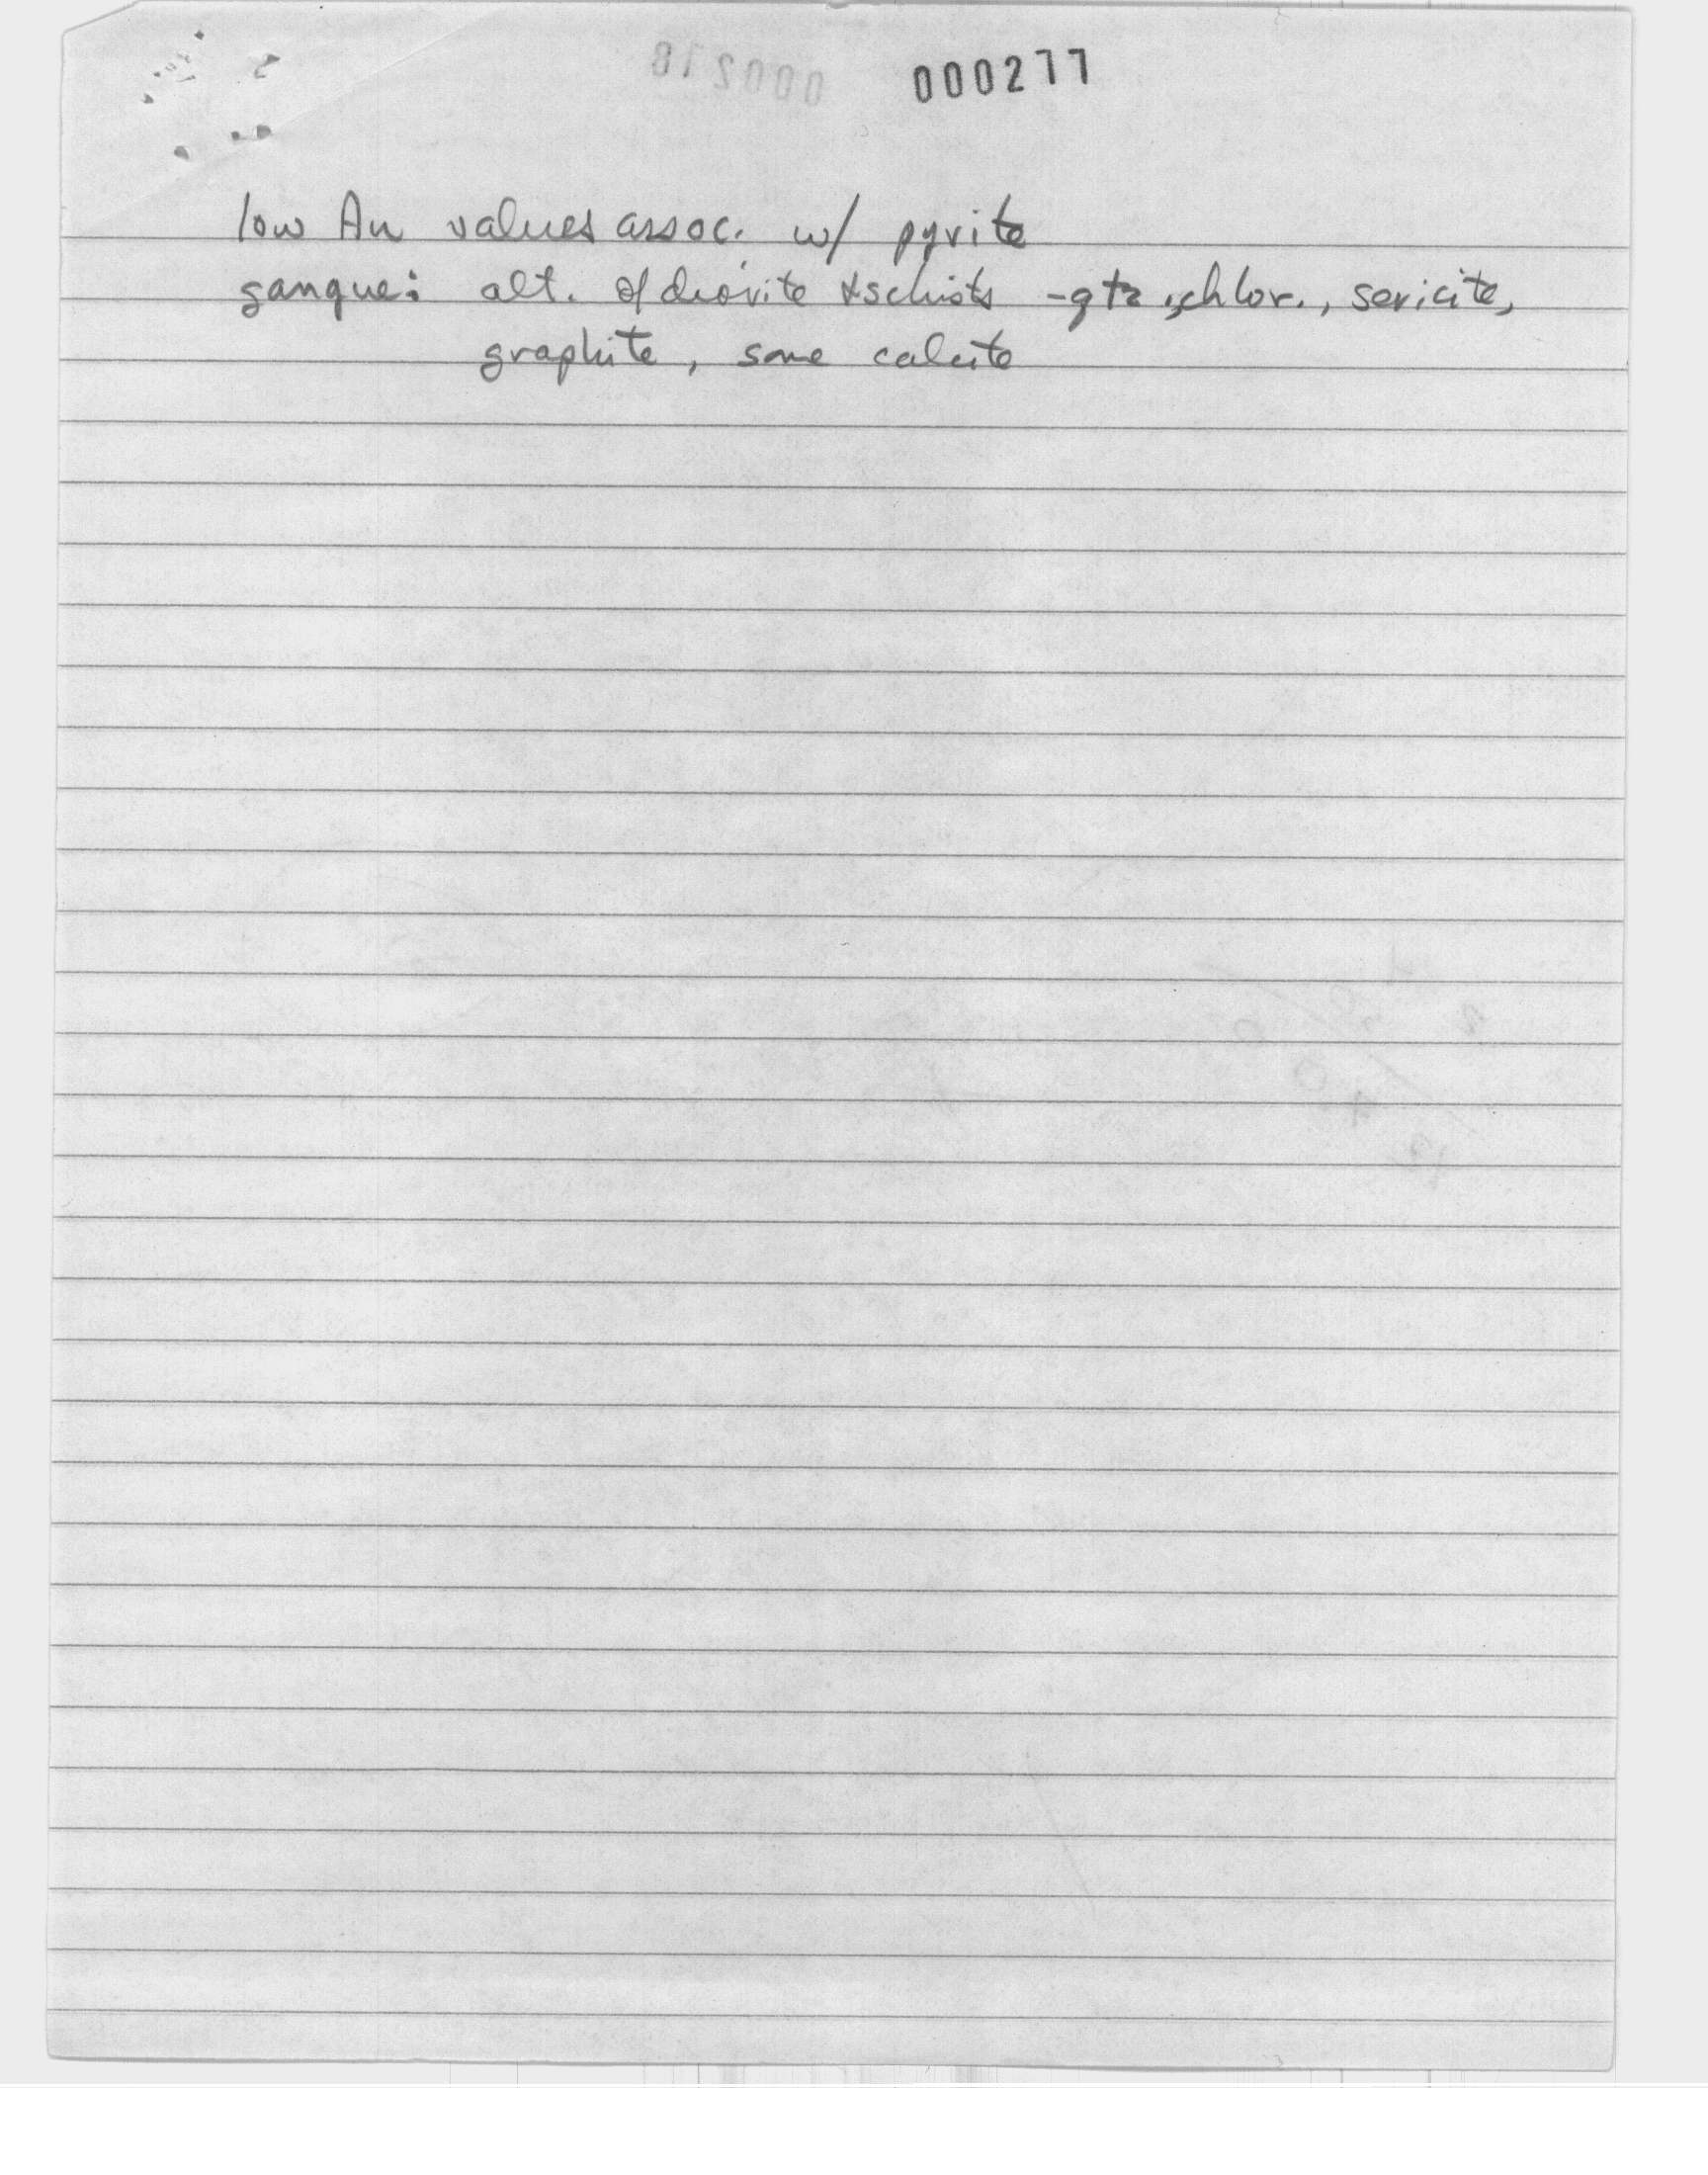 000277
low Au values assoc. w/ pyrite
gangue: alt. of diorite & schists - qtz, chlor., sericite,
graphite, some calcite